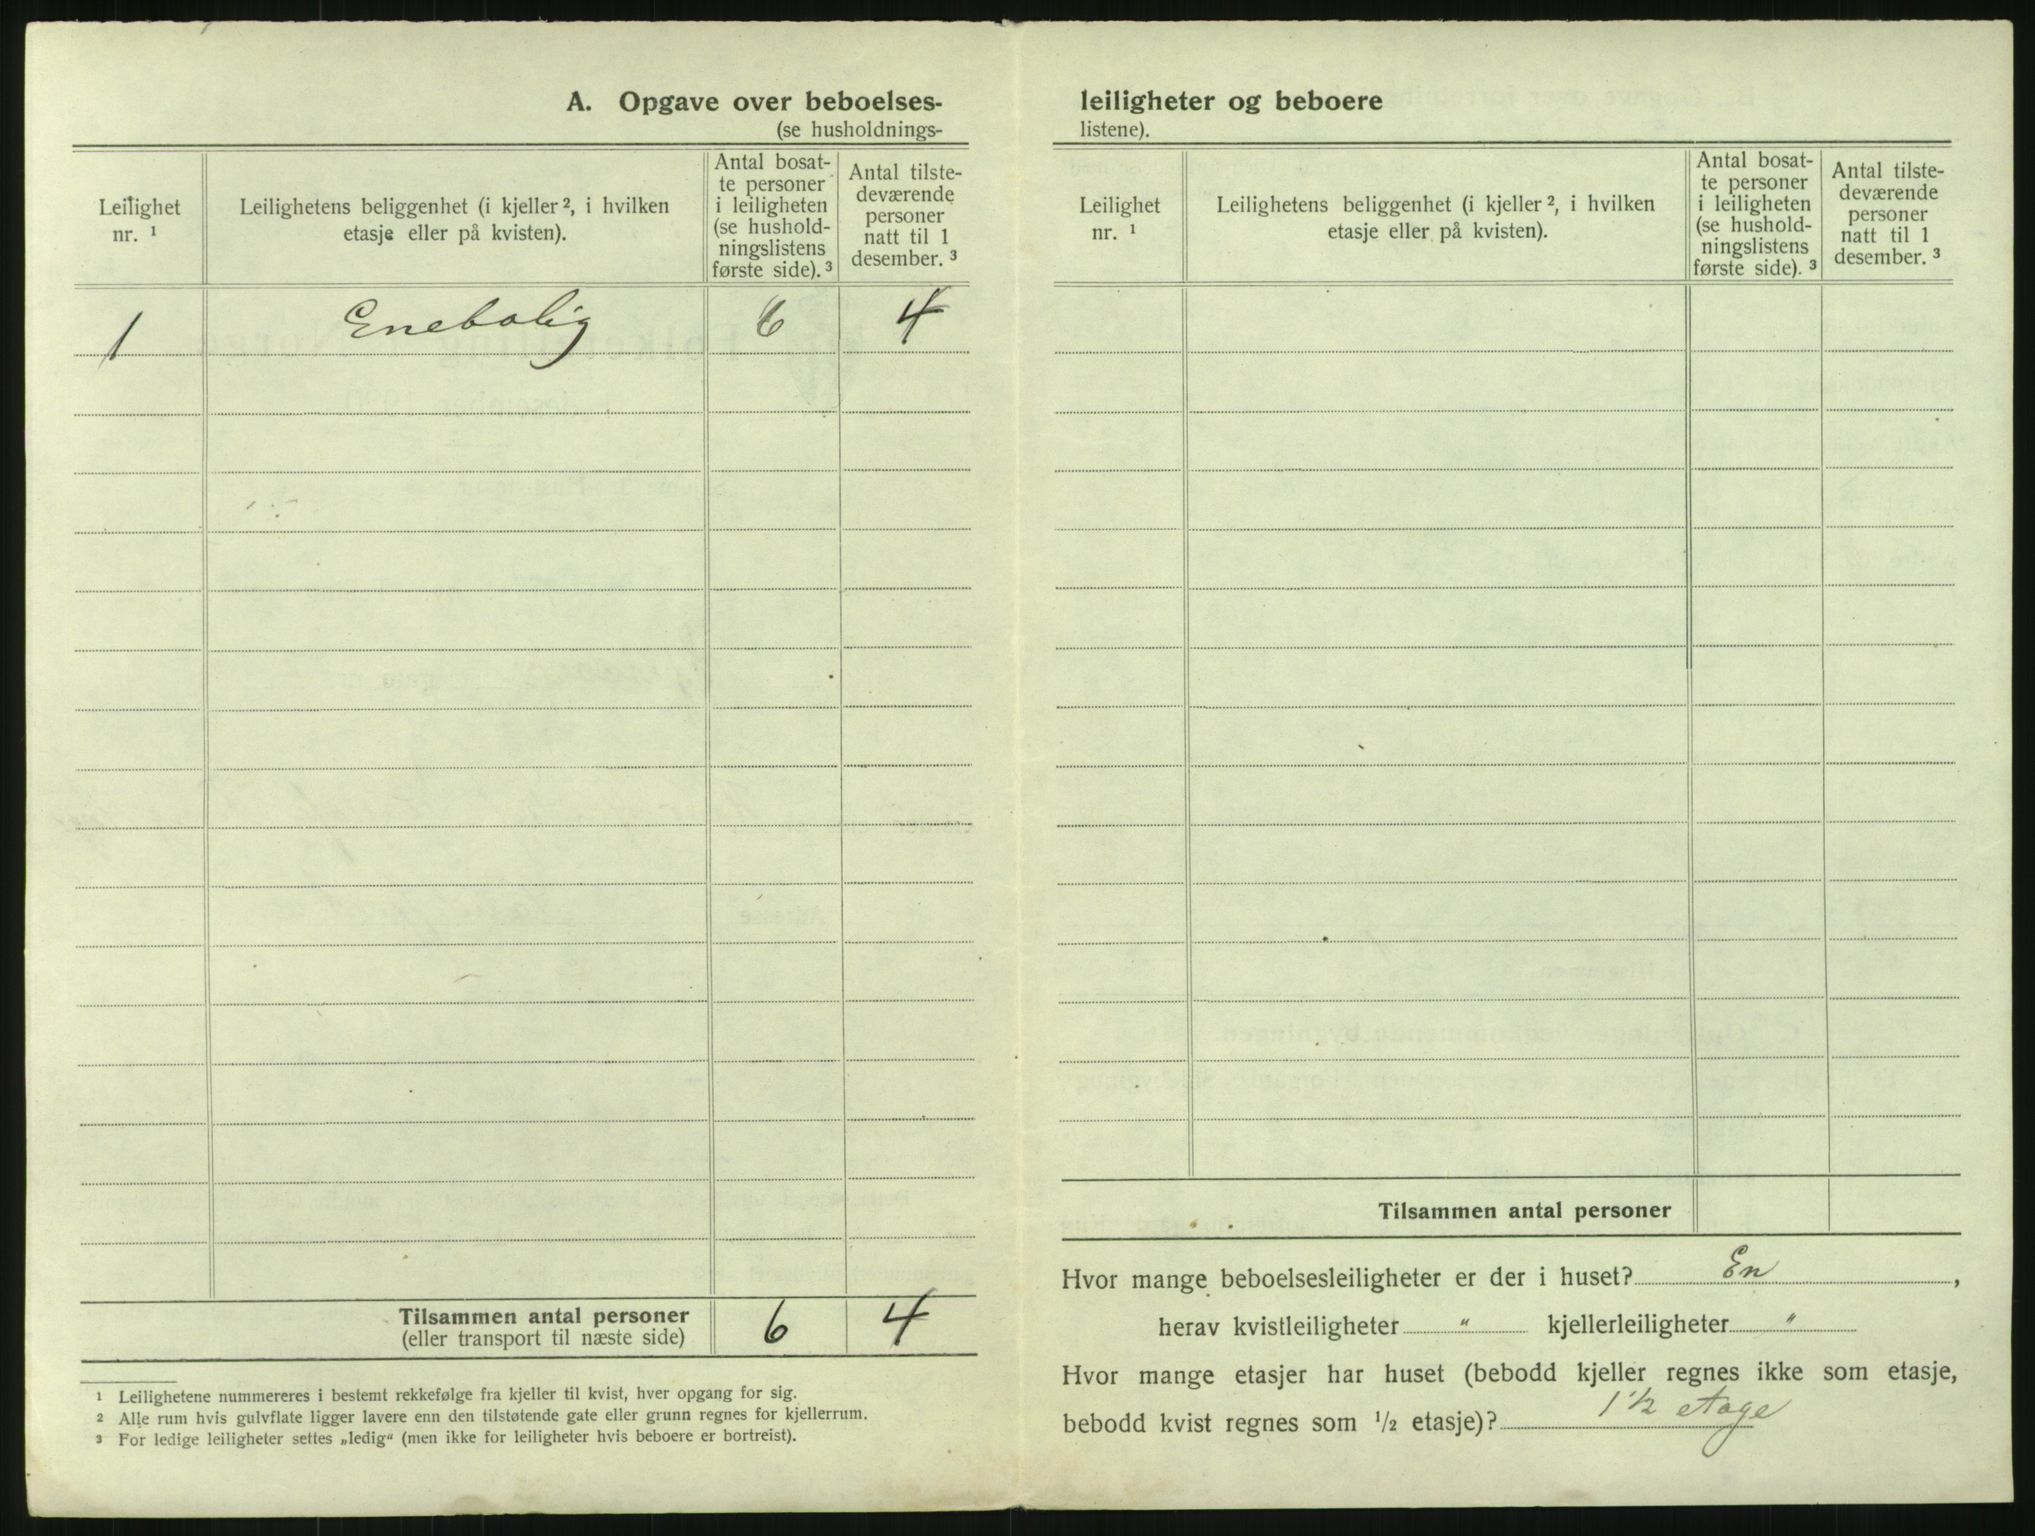 A. Opgave over beboelses-
(se husholdnings-
Leilighet
nr. ¹
Leilighetens beliggenhet (i kjeller ², i hvilken
etasje eller på kvisten).
Antal bosat-
te personer
i leiligheten
(se hushold-
ningslistens
første side). ³
Antal tilste-
deværende
personer
natt til 1
desember. ³
1 Enebolig 6 4
Tilsammen antal personer 6 4
(eller transport til næste side)
¹ Leilighetene nummereres i bestemt rekkefølge fra kjeller til kvist, hver opgang for sig.
² Alle rum hvis gulvflate ligger lavere enn den tilstøtende gate eller grunn regnes for kjellerrum.
³ For ledige leiligheter settes „ledig“ (men ikke for leiligheter hvis beboere er bortreist).
leiligheter og beboere
listene).
Leilighet
nr. ¹
Leilighetens beliggenhet (i kjeller ², i hvilken
etasje eller på kvisten).
Antal bosat-
te personer
i leiligheten
(se hushold-
ningslistens
første side). ³
Antal tilste-
deværende
personer
natt til 1
desember. ³
Tilsammen antal personer
Hvor mange beboelsesleiligheter er der i huset? En,
herav kvistleiligheter " kjellerleiligheter "
Hvor mange etasjer har huset (bebodd kjeller regnes ikke som etasje,
bebodd kvist regnes som ½ etasje)? 1½ etage